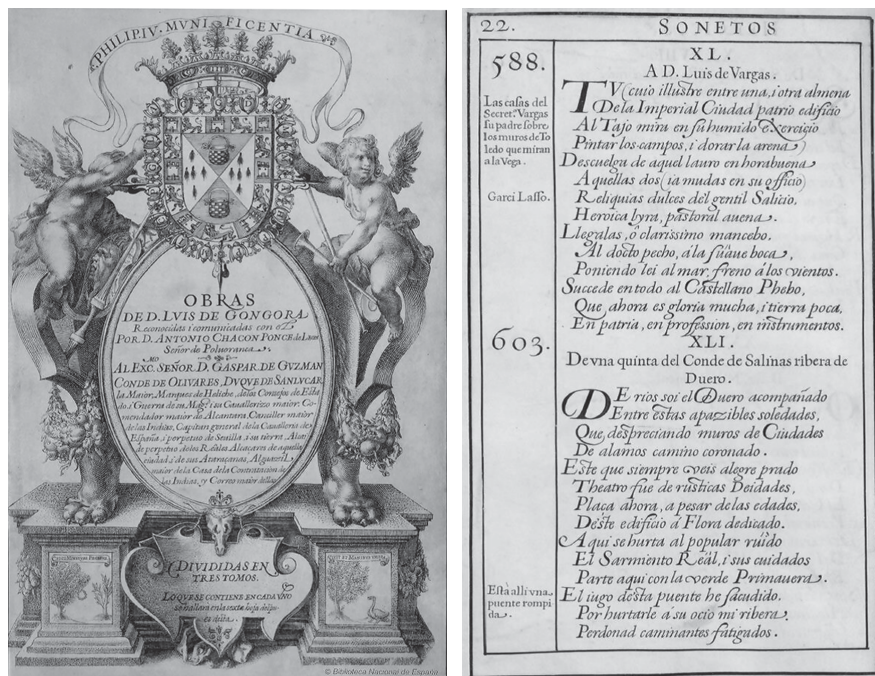 PHILIP.IV. MVNIFICENTIA
OBRAS
DE D. LVIS DE GONGORA
Reconocidas i comunicadas con el
POR D. ANTONIO CHACON PONCE de Leon
Señor de Poluoranca.
AL EXC. SEÑOR D. GASPAR DE GVZMAN
CONDE DE OLIVARES, DVQVE DE SANLVCAR
la Maior, Marques de Heliche, de los Consejos de Esta
do, i Guerra de su Magd. i su Cauallerizo maior. Co-
mendador maior de Alcantara, Canciller maior
de las Indias, Capitan general de la Caualleria de
España, i perpetuo de Seuilla, i su tierra, Alcai
de perpetuo de los Reales Alcaçares de aquella
ciudad, i de sus Ataraçanas, Alguacil
maior de la Casa de la Contratacion de
las Indias, y Correo maior dellas
DIVIDIDAS EN
TRES TOMOS.
LO QVE SE CONTIENE EN CADA VNO
se hallara en la
© Biblioteca Nacional de España
22. SONETOS
588.
XL.
A D. Luis de Vargas.
Las casas del
Secret.º Vargas
su padre sobre
los muros de To
ledo que miran
a la Vega.
TV (cuio illustre entre una, i otra almena
De la Imperial Ciudad patrio edificio
Al Tajo mira en su humido exercicio
Pintar los campos, i dorar la arena)
Descuelga de aquel lauro en horabuena
Aquellas dos (ia mudas en su officio)
Garci Lasso.
Reliquias dulces del gentil Salicio,
Heroica lyra, pastoral auena.
Llegalas, ô clarissimo mancebo,
Al docto pecho, á la süaue boca,
Poniendo lei al mar, freno á los vientos.
Succede en todo al Castellano Phebo,
Que ahora es gloria mucha, i tierra poca,
En patria, en profession, en instrumentos.
603.
XLI.
De vna quinta del Conde de Salinas ribera de
Duero.
DE rios soi el Duero acompañado
Entre estas apazibles soledades,
Que despreciando muros de Ciudades
De alamos camino coronado.
Este que siempre veis alegre prado
Theatro fue de rusticas Deidades,
Plaça ahora, a pesar de las edades,
Deste edificio á Flora dedicado.
Aqui se hurta al popular ruido
El Sarmiento Reäl, i sus cuidados
Parte aqui con la verde Primauera.
Està alli vna
puente rompi
da.
El iugo desta puente he sacudido.
Por hurtarle á su ocio mi ribera.
Perdonad caminantes fatigados.